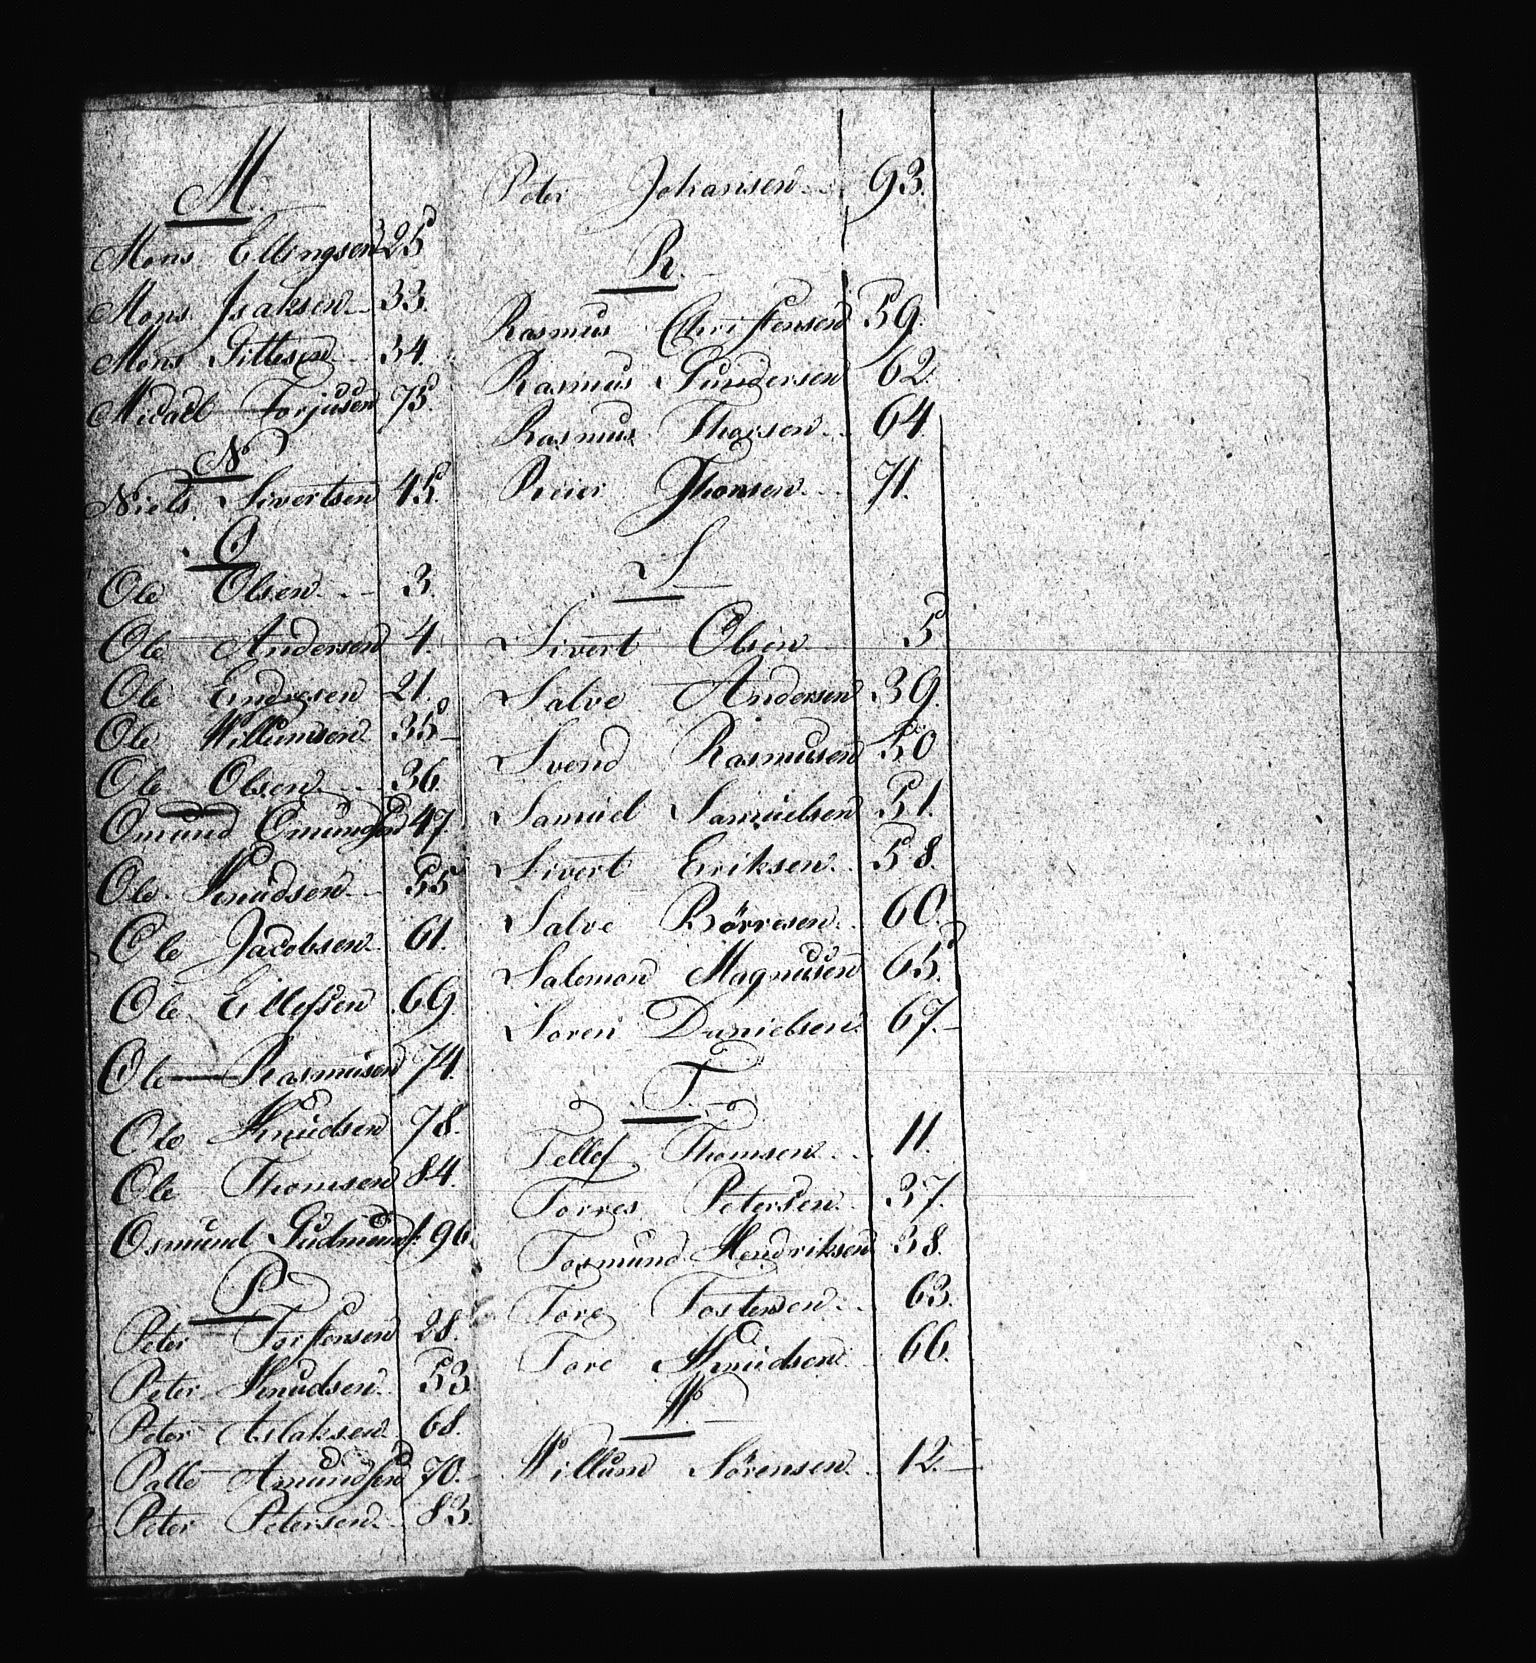 M.
Mons Ellingsen 25
Mons Isaksen 33.
Mons Gittesen 34.
Micael Torjusen 75.
N
Niels Sivertsen 45.
O
Ole Olsen 3.
Ole Andersen 4.
Ole Endresen 21.
Ole Willumsen 35
Ole Olsen 36.
Omund Omundsen 47.
Ole Knudsen 55
Ole Jacobsen 61.
Ole Ellefsen 69
Ole Rasmusen 74.
Ole Knudsen 78.
Ole Thomsen 84.
Osmund Gudmunds: 96
P
Peter Torstensen 28.
Peter Knudsen 53.
Peter Aslaksen 68.
Palle Amundsen 70.
Peter Petersen 83.
Peter Johansen 93.
R.
Rasmus Christensen 59.
Rasmus Gundersen 62.
Rasmus Thorsen 64.
Reier Thomsen 71.
S
Sivert Olsen 5
Salve Andersen 39.
Svend Rasmusen 50
Samuel Samuelsen 51.
Sivert Eriksen 58.
Salve Börresen 60.
Salomon Magnusen 65.
Soren Danielsen 67.
T.
Tellef Thomsen 11.
Torres Petersen 37.
Tormund Hendriksen 38.
Tore Tostensen 63.
Tore Knudsen 66.
W.
Willum Sörensen 12.